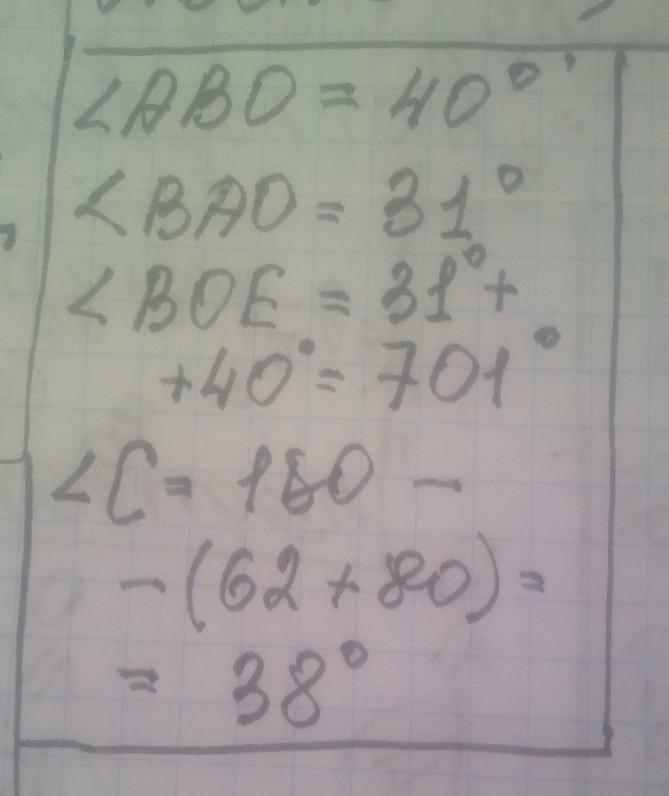 <ABO = 40°
<BAO = 31°
<BOE = 31° +
+40° = 701°
<C = 180 -
- (62 + 80) =
= 38°